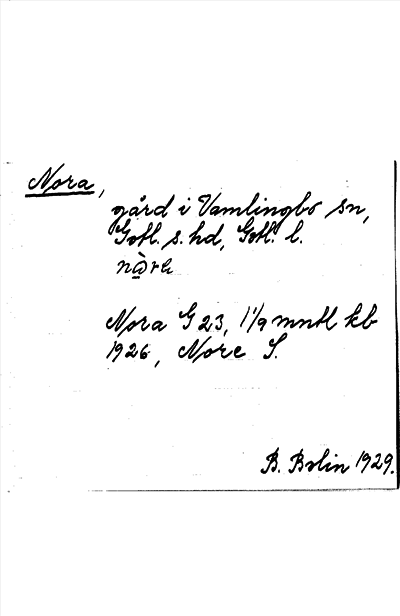 Nora,
gård i Vamlingbo sn,
Gotl. s. hd, Gotl. l.
Nora G 23, 1 1/9 mntl kb
1926, Nore S.
B. Bolin 1929.